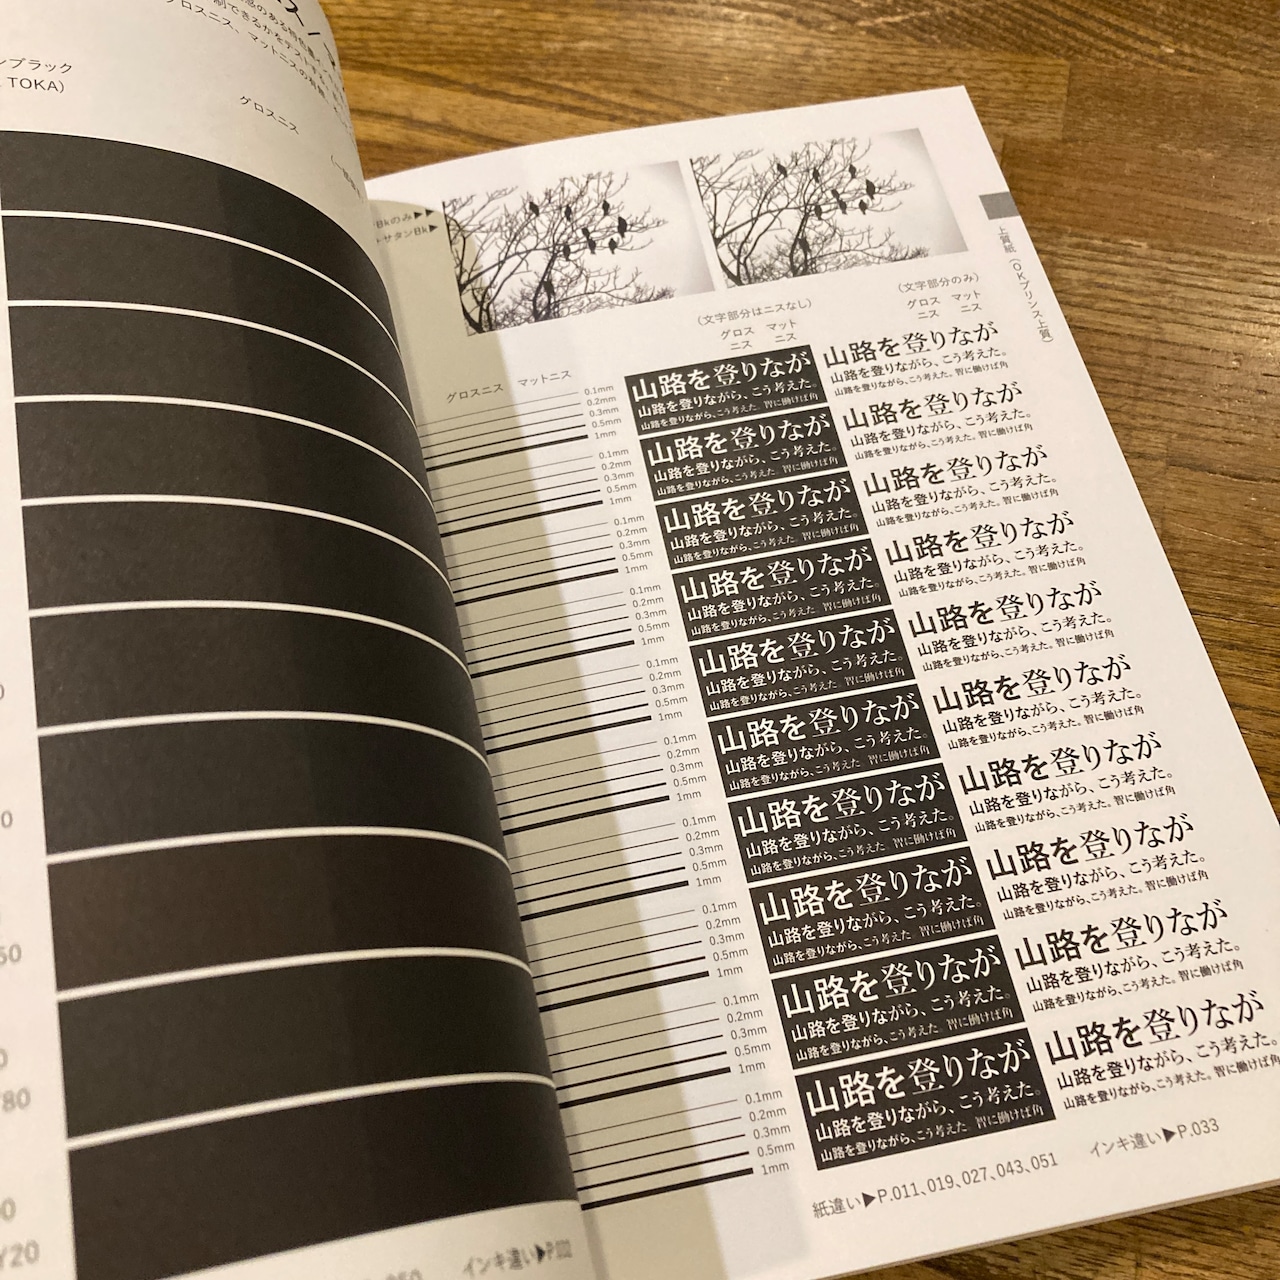 ンブラック
TOKA）
グロスニス
60
80
Y20
インキ違い▶P.032
Bkのみ▶▶
サタンBk▶
上質紙（OKプリンス上質）
（文字部分はニスなし）
グロス
ニス
マット
ニス
（文字部分のみ）
グロス
ニス
マット
ニス
グロスニス　マットニス
0.1mm
0.2mm
0.3mm
0.5mm
1mm
0.1mm
0.2mm
0.3mm
0.5mm
1mm
0.1mm
0.2mm
0.3mm
0.5mm
1mm
0.1mm
0.2mm
0.3mm
0.5mm
1mm
0.1mm
0.2mm
0.3mm
0.5mm
1mm
0.1mm
0.2mm
0.3mm
0.5mm
1mm
0.1mm
0.2mm
0.3mm
0.5mm
1mm
0.1mm
0.2mm
0.3mm
0.5mm
1mm
0.1mm
0.2mm
0.3mm
0.5mm
1mm
0.1mm
0.2mm
0.3mm
0.5mm
1mm
山路を登りなが
山路を登りながら、こう考えた。
山路を登りながら、こう考えた。智に働けば角
山路を登りなが
山路を登りながら、こう考えた。
山路を登りながら、こう考えた。智に働けば角
山路を登りなが
山路を登りながら、こう考えた。
山路を登りながら、こう考えた。智に働けば角
山路を登りなが
山路を登りながら、こう考えた。
山路を登りながら、こう考えた。智に働けば角
山路を登りなが
山路を登りながら、こう考えた。
山路を登りながら、こう考えた。智に働けば角
山路を登りなが
山路を登りながら、こう考えた。
山路を登りながら、こう考えた。智に働けば角
山路を登りなが
山路を登りながら、こう考えた。
山路を登りながら、こう考えた。智に働けば角
山路を登りなが
山路を登りながら、こう考えた。
山路を登りながら、こう考えた。智に働けば角
山路を登りなが
山路を登りながら、こう考えた。
山路を登りながら、こう考えた。智に働けば角
山路を登りなが
山路を登りながら、こう考えた。
山路を登りながら、こう考えた。智に働けば角
山路を登りなが
山路を登りながら、こう考えた。
山路を登りながら、こう考えた。智に働けば角
山路を登りなが
山路を登りながら、こう考えた。
山路を登りながら、こう考えた。智に働けば角
山路を登りなが
山路を登りながら、こう考えた。
山路を登りながら、こう考えた。智に働けば角
山路を登りなが
山路を登りながら、こう考えた。
山路を登りながら、こう考えた。智に働けば角
山路を登りなが
山路を登りながら、こう考えた。
山路を登りながら、こう考えた。智に働けば角
山路を登りなが
山路を登りながら、こう考えた。
山路を登りながら、こう考えた。智に働けば角
山路を登りなが
山路を登りながら、こう考えた。
山路を登りながら、こう考えた。智に働けば角
山路を登りなが
山路を登りながら、こう考えた。
山路を登りながら、こう考えた。智に働けば角
山路を登りなが
山路を登りながら、こう考えた。
山路を登りながら、こう考えた。智に働けば角
山路を登りなが
山路を登りながら、こう考えた。
山路を登りながら、こう考えた。智に働けば角
紙違い▶P.011、019、027、043、051
インキ違い▶P.033